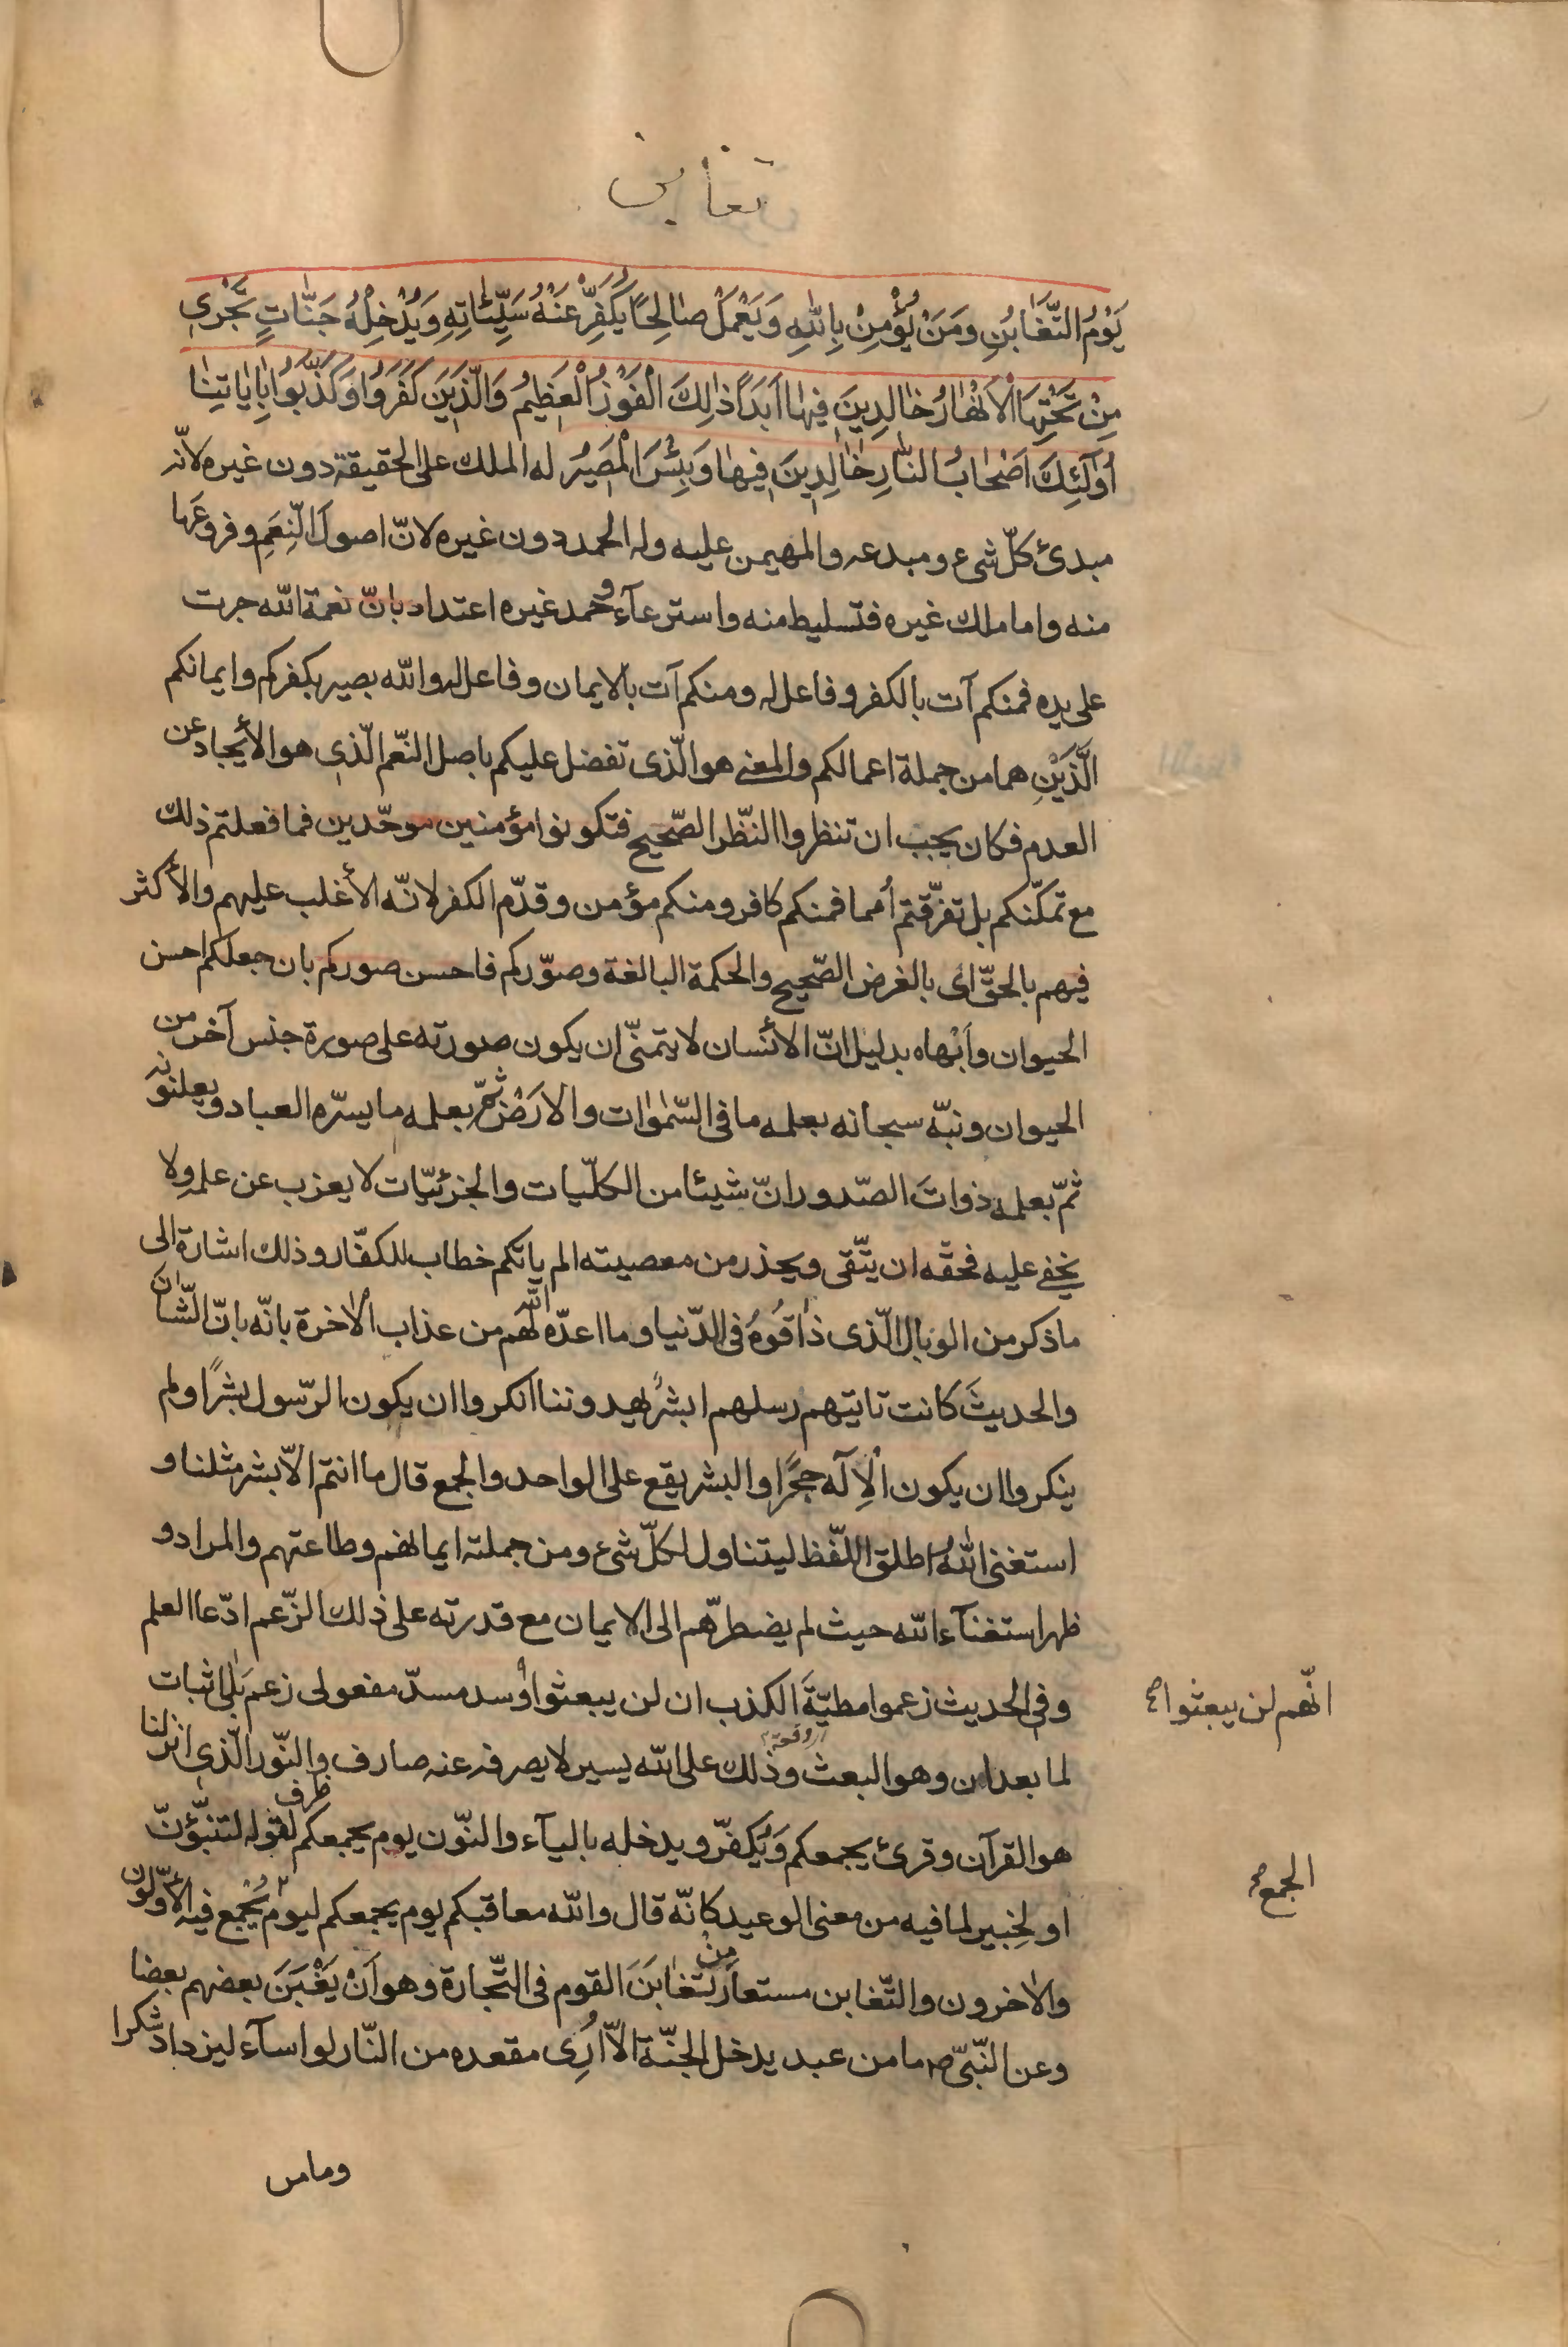 تغابن
يَوْمُ التَّغَابُنِ وَمَنْ يُؤْمِنْ بِاللهِ وَيَعْمَلْ صَالِحًا يُكَفِّرْ عَنْهُ سَيِّئَاتِهِ وَيُدْخِلْهُ جَنَّاتٍ تَجْرِي
مِنْ تَحْتِهَا الْأَنْهَارُ خَالِدِينَ فِيهَا أَبَدًا ذَلِكَ الْفَوْزُ الْعَظِيمُ وَالَّذِينَ كَفَرُوا وَكَذَّبُوا بِآيَاتِنَا
أُولَئِكَ أَصْحَابُ النَّارِ خَالِدِينَ فِيهَا وَبِئْسَ الْمَصِيرُ له الملك على الحقيقة دون غيره لانّه
مبدئ كلّ شىء ومبدعه والمهيمن عليه وله الحمد دون غيره لانّ اصول النِعَمِ وفروعَها
منه واما ملك غيره فتسليط منه واسترعآء وحمد غيره اعتداد بانّ نعمة الله جرت
على يده فمنكم آت بالكفر وفاعل له ومنكم آت بالايمان وفاعل له والله بصير بكفركم وايمانكم
الَّذَيْنِ هما من جملة اعمالكم والمعنى هو الّذى تفضل عليكم باصل النّعم الّذى هو الأيجاد عن
العدم فكان يجب ان تنظروا النّظر الصّحيح فتكونوا مؤمنين موحّدين فما فعلتم ذلك
مع تمكّنكم بل تفرّقتم أمما فمنكم كافر ومنكم مؤمن وقدّم الكفر لانّه الأغلب عليهم والأكثر
فيهم بالحقّ اى بالغرض الصّحيح والحكمة البالغة وصوّركم فاحسن صوركم بان جعلكم احسن
الحيوان وأبهاه بدليل انّ الأنسان لا يتمنّى ان يكون صورته على صورة جنس آخر من
الحيوان ونبّه سبحانه بعلمه ما فى السّموات والارض ثمّ بعلمه ما يسرّه العباد ويعلنونه
ثمّ بعلمه ذوات الصّدور انّ شيئا من الكلّيات والجزئيّات لا يعزب عن علمه ولا
يخفى عليه فحقّه ان يتّقى ويحذر من معصيته الم ياتكم خطاب للكفّار وذلك اشارة الى
ما ذكر من الوبال الّذى ذاقُوهُ فى الدّنيا وما اعدّه الله لهم من عذاب الآخرة بانّه بانّ الشّان
والحديث كانت تاتيهم رسلهم ابشرٌ يهدوننا انكروا ان يكون الرّسول بشرًا ولم
ينكروا ان يكون الإله حجرًا والبشر يقع على الواحد والجمع قال ما انتم الّا بشر مثلنا و
استغنى اللهُ اطلق اللّفظ ليتناول كلّ شىء ومن جملته ايمانهم وطاعتهم والمراد و
ظهر استغنآء الله حيث لم يضطرّهم الى الايمان مع قدرته على ذلك الزّعم ادّعا العلم
وفى الحديث زعموا مطيّةَ الكذب ان لن يبعثوا وسد مسدّ مفعولى زعم بلى اثبات
انّهم لن يبعثوا صح
لما بعد لن وهو البعث وذلك على الله يسير لا يصرفه عنه صارف والنّور الّذى انزلنا
هو القرآن وقرئ يجمعكم وَيُكفّر ويدخله باليآء والنّون يوم يجمعكم ظرف لقوله لتنبّؤنّ
او لخبير لما فيه من معنى الوعيد كانّه قال والله معاقبكم يوم يجمعكم ليوم يُجْمع فيه الأوّلون
الجمع صح
والاخرون والتّغابن مستعار مِنْ تغابَنَ القوم فى التّجارة وهو اَنْ يَغْبَنَ بعضهم بعضا
وعن النّبىّ ص ما من عبد يدخل الجنّة الّا اُرِى مقعده من النّار لو اسآء ليزداد شكرا
وما من